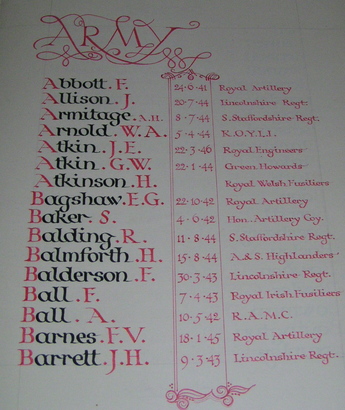 ARMY
Abbott. F. 24·6·41 Royal Artillery
Allison. J. 20·7·44 Lincolnshire Regt.
Armitage. A.H. 8·7·44 S. Staffordshire Regt.
Arnold. W. A. 5·4·44 K.O.Y.L.I.
Atkin. J.E. 22·3·46 Royal Engineers
Atkin. G.W. 22·1·44 Green Howards
Atkinson. H. Royal Welsh Fusiliers
Bagshaw. E.G. 22·10·42 Royal Artillery
Baker. S. 4·6·42 Hon. Artillery Coy.
Balding. R. 11·8·44 S. Staffordshire Regt.
Balmforth. H. 15·8·44 A.&S. Highlanders
Balderson. F. 30·3·43 Lincolnshire Regt.
Ball. F. 7·4·43 Royal Irish Fusiliers
Ball. A. 10·5·42 R.A.M.C.
Barnes. F.V. 18·1·45 Royal Artillery
Barrett. J.H. 9·3·43 Lincolnshire Regt.